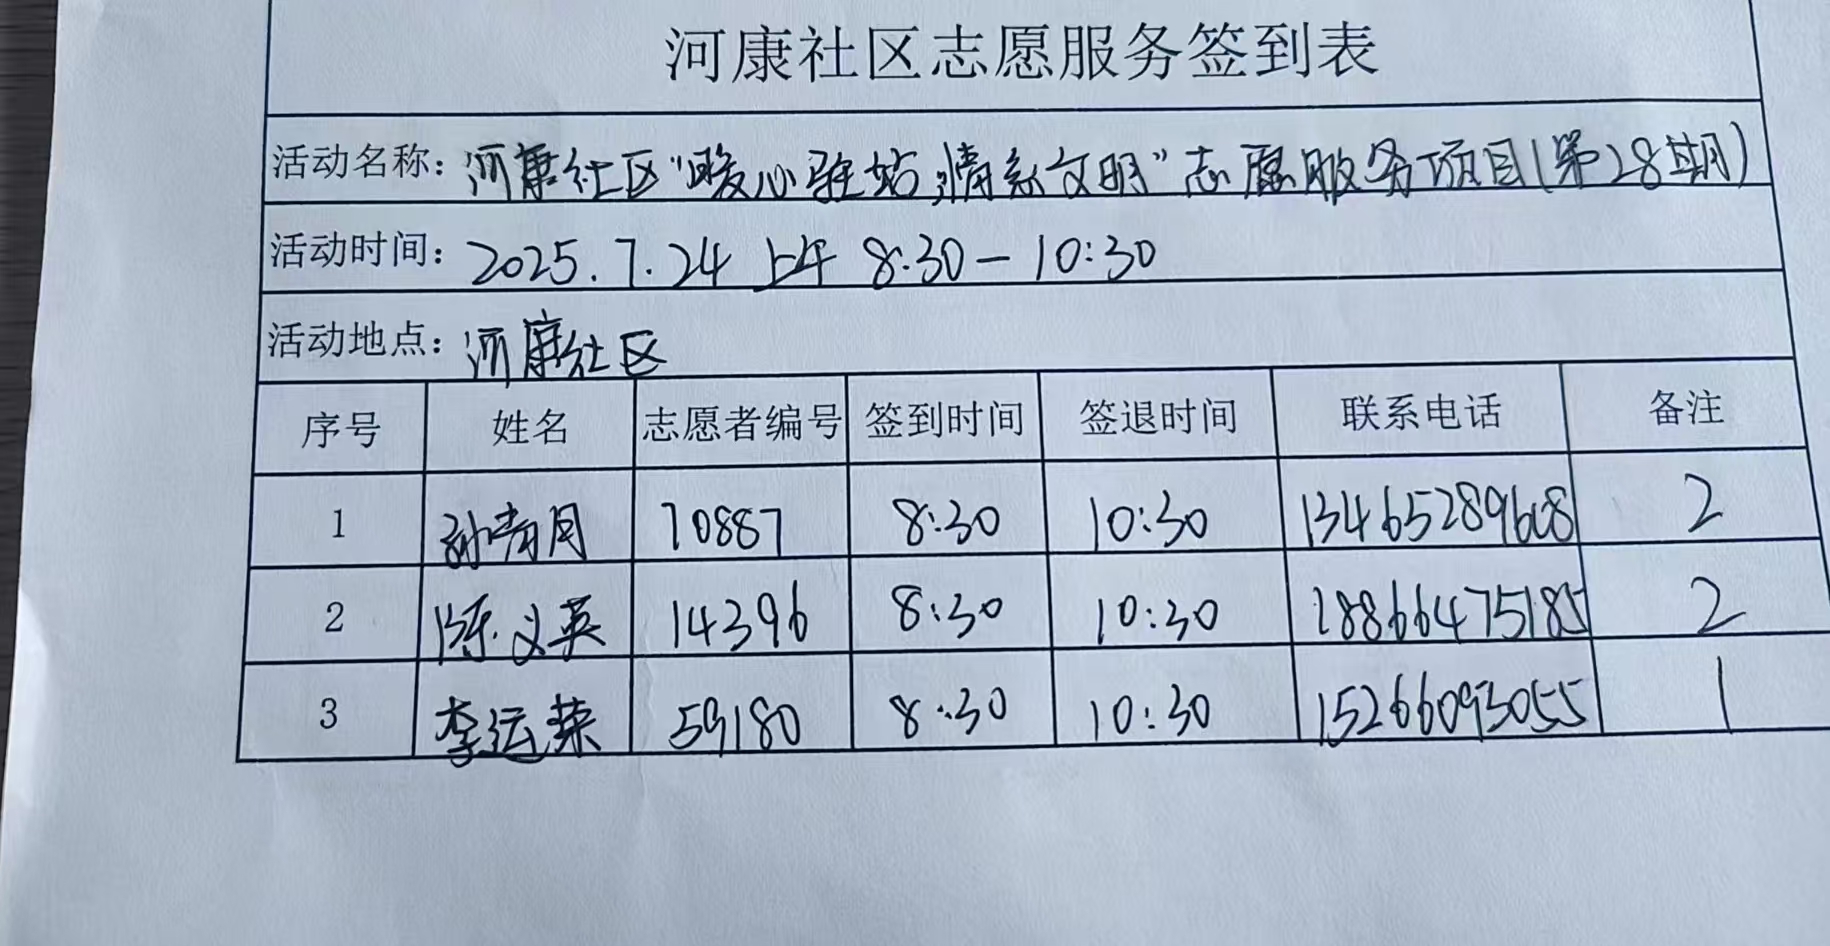 河康社区志愿服务签到表
活动名称：河康社区“暖心驿站，情系文明”志愿服务项目（第28期）
活动时间：2025.7.24 上午 8:30—10:30
活动地点：河康社区
序号 姓名 志愿者编号 签到时间 签退时间 联系电话 备注
1 孙青月 70887 8:30 10:30 13465289608 2
2 陈义英 14396 8:30 10:30 18866475185 2
3 李运荣 59180 8:30 10:30 15266093055 1